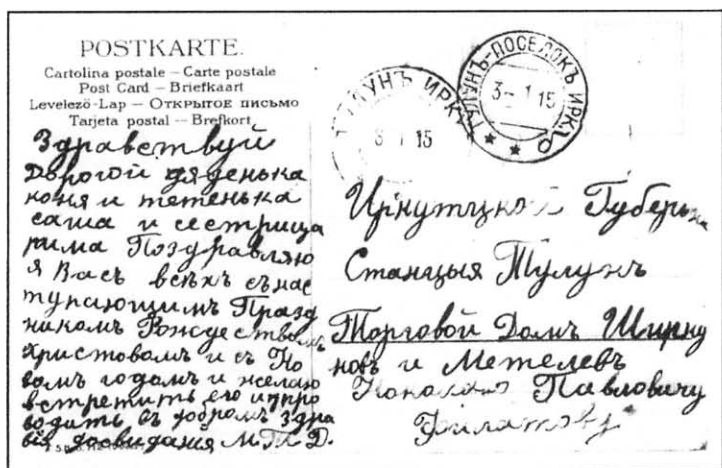 POSTKARTE.
Cartolina postale – Carte postale
Post Card – Briefkaart
Levelező-Lap – Открытое письмо
Tarjeta postal – Brefkort
Здравствуй
Дорогой дяденька
коня и тетенька
саша и сестрица
рима Поздравляю
я Васъ всѣхъ съ нас
тупающимъ Празд
никомъ Рождествомъ
Христовомъ и съ Но
вомъ годомъ и желаю
встретить его и про
водить въ добромъ здра
віи досвидания М. П. Д.
ТУЛУНЪ ИРК
3 1 15
ТУЛУНЪ-ПОСЕЛОКЪ ИРК.
3-1 15
Иркутцкой Губерн
Станцыя Тулунъ
Торговой Домъ Щирку
новъ и Метелевъ
Павловичу